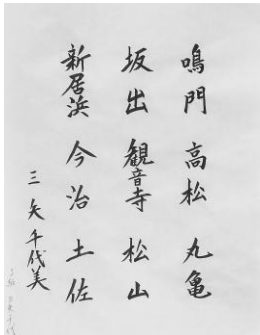 鳴門 高松 丸亀
坂出 観音寺 松山
新居浜 今治 土佐
三矢千代美